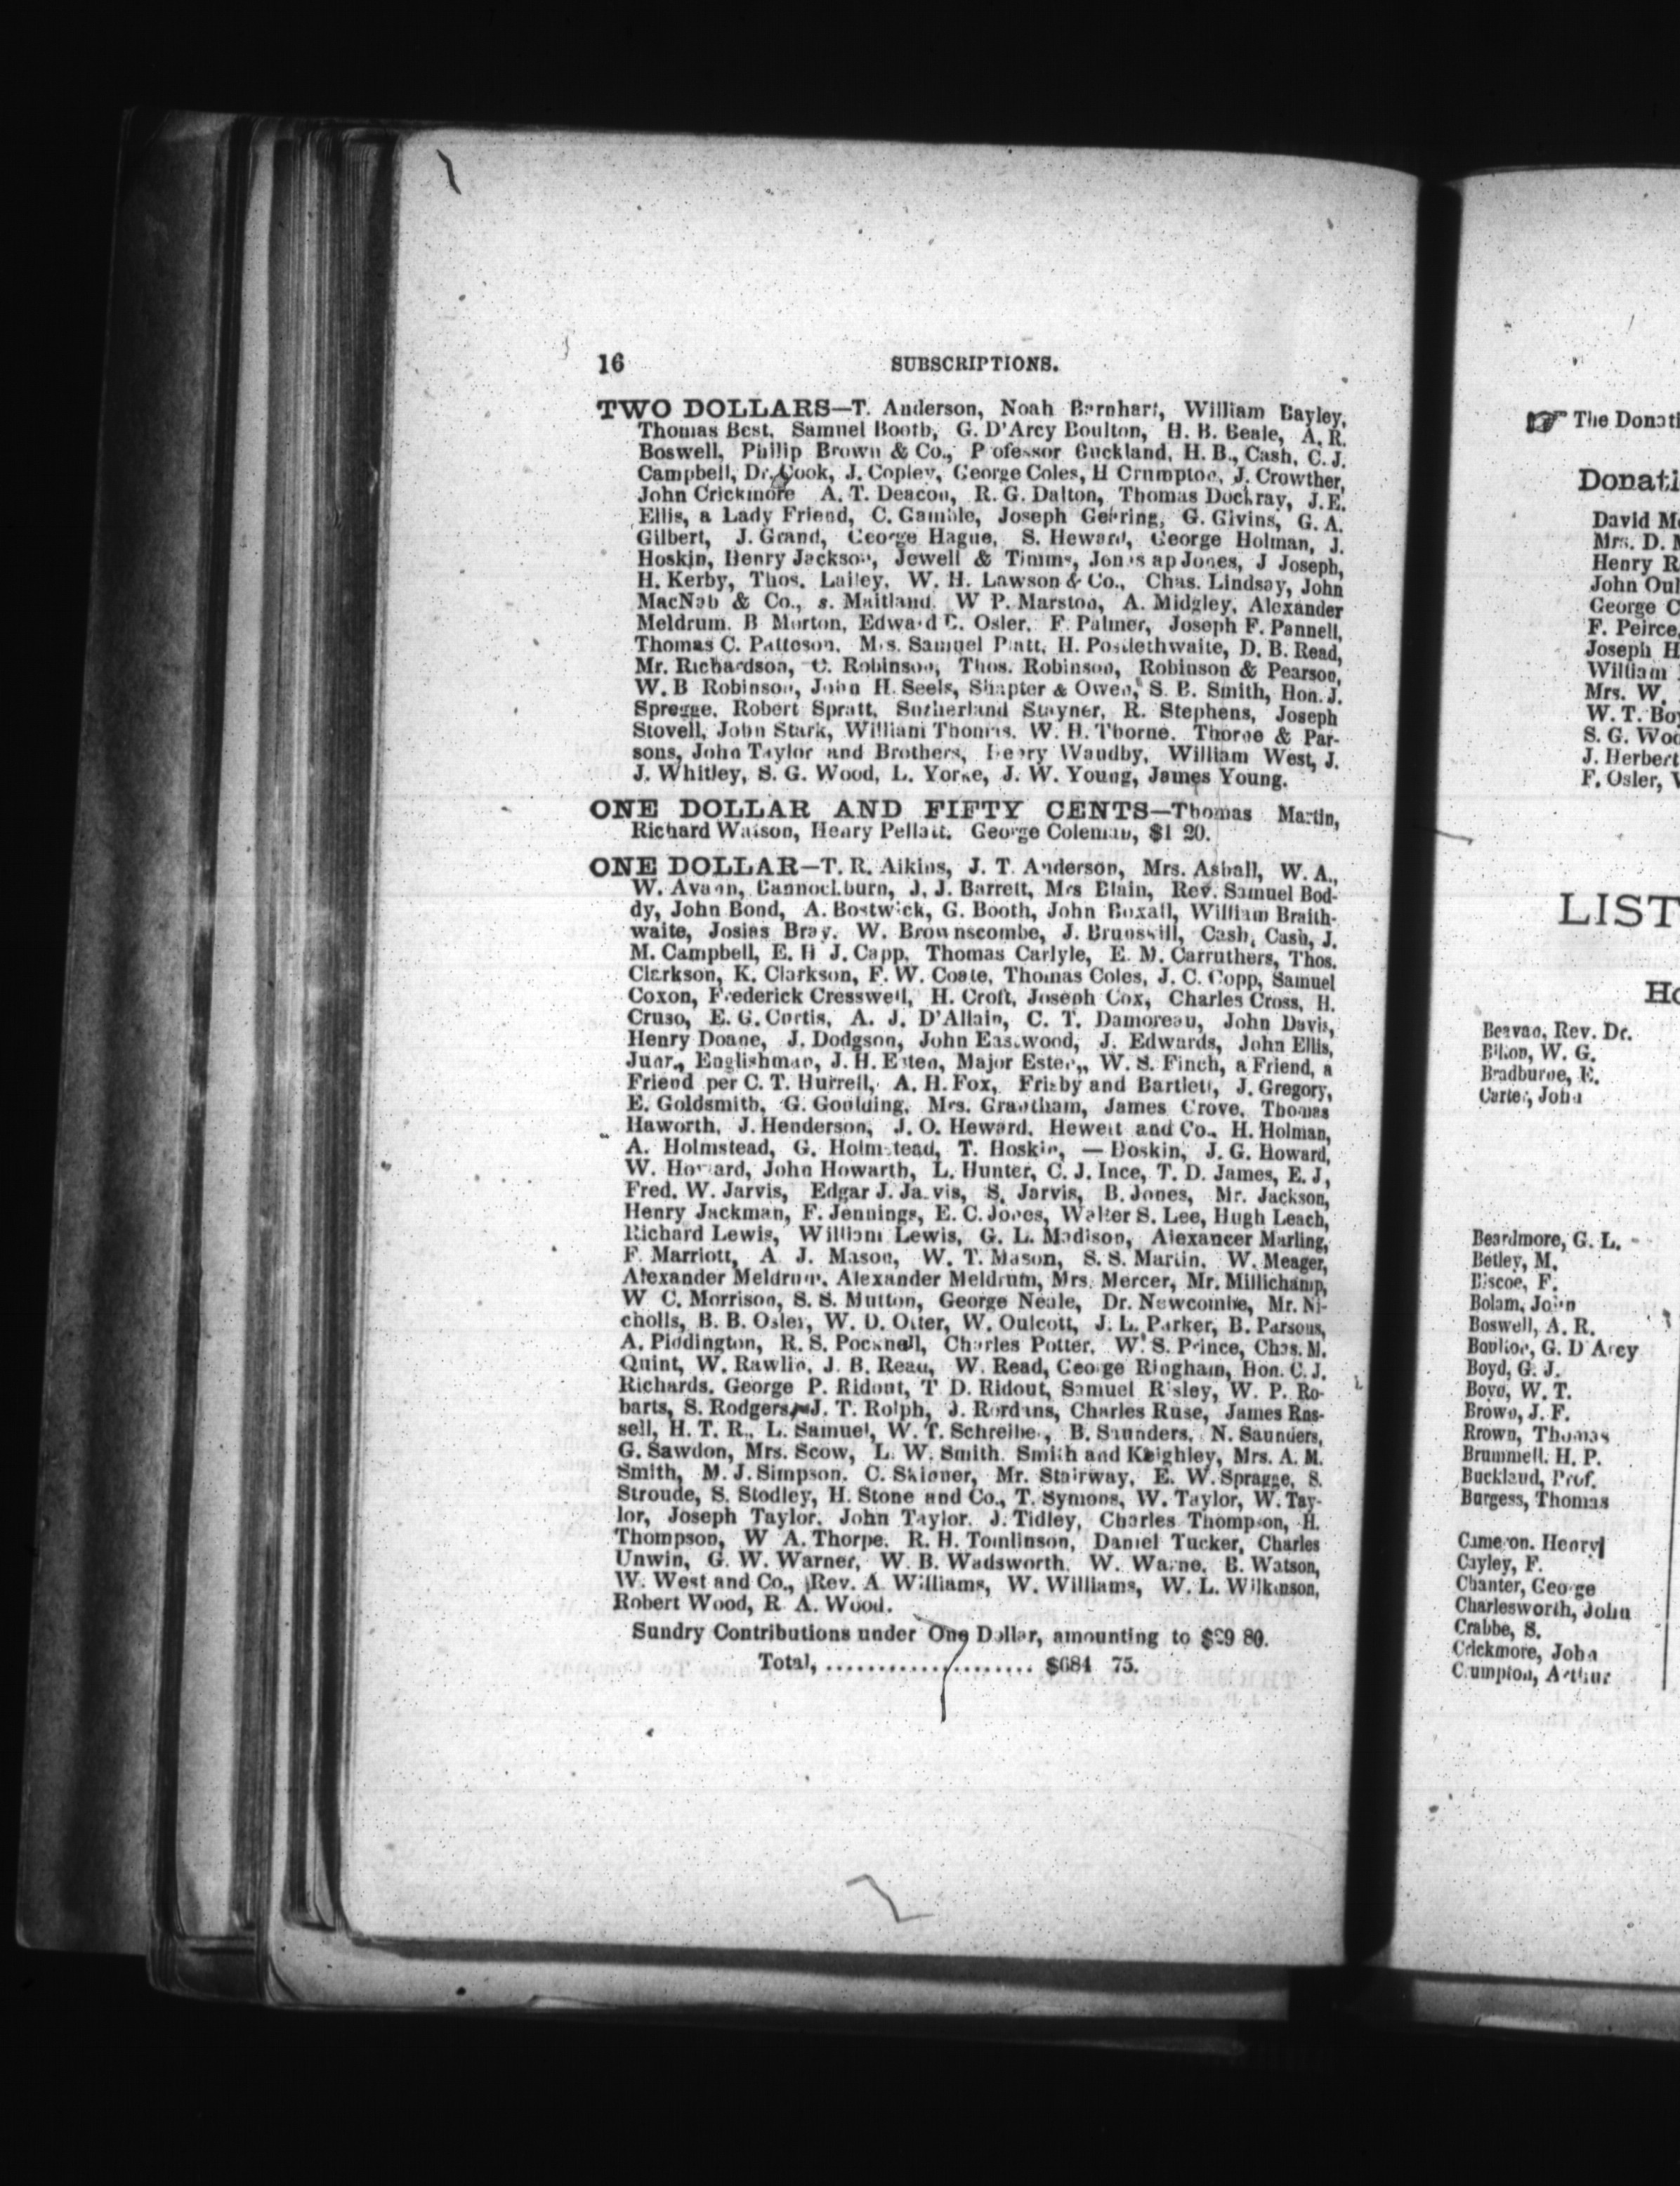 16 SUBSCRIPTIONS.
TWO DOLLARS—T. Anderson, Noah Barnhart, William Bayley,
Thomas Best, Samuel Booth, G. D'Arcy Boulton, H. B. Beale, A. R.
Boswell, Philip Brown & Co., Professor Buckland, H. B., Cash, C. J.
Campbell, Dr. Cook, J. Copley, George Coles, H Crumpton, J. Crowther,
John Crickmore A. T. Deacon, R. G. Dalton, Thomas Dockray, J. E.
Ellis, a Lady Friend, C. Gamble, Joseph Gearing, G. Givins, G. A.
Gilbert, J. Grand, George Hague, S. Heward, George Holman, J.
Hoskin, Henry Jackson, Jewell & Timms, Jones ap Jones, J Joseph,
H. Kerby, Thos. Lailey, W. H. Lawson & Co., Chas. Lindsay, John
MacNab & Co., s. Maitland. W P. Marston, A. Midgley, Alexander
Meldrum. B Morton, Edward C. Osler, F. Palmer, Joseph F. Pannell,
Thomas C. Patteson, Mrs. Samuel Platt, H. Postlethwaite, D. B. Read,
Mr. Richardson, C. Robinson, Thos. Robinson, Robinson & Pearson,
W. B Robinson, John H. Seels, Shapter & Owen, S. B. Smith, Hon. J.
Spregge, Robert Spratt, Sutherland Stayner, R. Stephens, Joseph
Stovell, John Stark, William Thomas. W. H. Thorne. Thorne & Par-
sons, John Taylor and Brothers, Henry Waudby, William West, J.
J. Whitley, S. G. Wood, L. Yorke, J. W. Young, James Young.
ONE DOLLAR AND FIFTY CENTS—Thomas Martin,
Richard Watson, Henry Pellatt. George Coleman, $1 20.
ONE DOLLAR—T. R. Aikins, J. T. Anderson, Mrs. Ashall, W. A.,
W. Avann, Bannockburn, J. J. Barrett, Mrs Blain, Rev. Samuel Bod-
dy, John Bond, A. Bostwick, G. Booth, John Boxall, William Braith-
waite, Josias Bray. W. Brownscombe, J. Brunskill, Cash, Cash, J.
M. Campbell, E. H J. Capp, Thomas Carlyle, E. M. Carruthers, Thos.
Clarkson, K. Clarkson, F. W. Coate, Thomas Coles, J. C. Copp, Samuel
Coxon, Frederick Cresswell, H. Croft, Joseph Cox, Charles Cross, H.
Cruso, E. G. Curtis, A. J. D'Allain, C. T. Damoreau, John Davis,
Henry Doane, J. Dodgson, John Eastwood, J. Edwards, John Ellis,
Junr., Englishman, J. H. Esten, Major Esten,, W. S. Finch, a Friend, a
Friend per C. T. Hurrell, A. H. Fox, Frisby and Bartlett, J. Gregory,
E. Goldsmith, G. Goulding, Mrs. Grantham, James Grove, Thomas
Haworth, J. Henderson, J. O. Heward, Hewett and Co., H. Holman,
A. Holmstead, G. Holmstead, T. Hoskin, — Hoskin, J. G. Howard,
W. Howard, John Howarth, L. Hunter, C. J. Ince, T. D. James, E. J,
Fred. W. Jarvis, Edgar J. Jarvis, S. Jarvis, B. Jones, Mr. Jackson,
Henry Jackman, F. Jennings, E. C. Jones, Walter S. Lee, Hugh Leach,
Richard Lewis, William Lewis, G. L. Madison, Alexander Marling,
F. Marriott, A. J. Mason, W. T. Mason, S. S. Martin, W. Meager,
Alexander Meldrum, Alexander Meldrum, Mrs. Mercer, Mr. Millichamp,
W C. Morrison, S. S. Mutton, George Neale, Dr. Newcombe, Mr. Ni-
cholls, B. B. Osler, W. D. Otter, W. Oulcott, J. L. Parker, B. Parsons,
A. Piddington, R. S. Pocknell, Charles Potter, W. S. Prince, Chas. M.
Quint, W. Rawlin, J. B. Read, W. Read, George Ringham, Hon. C. J.
Richards, George P. Ridout, T D. Ridout, Samuel Risley, W. P. Ro-
barts, S. Rodgers, J. T. Rolph, J. Rordans, Charles Ruse, James Ros-
sell, H. T. R., L. Samuel, W. T. Schreiber, B. Saunders, N. Saunders,
G. Sawdon, Mrs. Scow, L. W. Smith, Smith and Keighley, Mrs. A. M.
Smith, M. J. Simpson. C. Skinner, Mr. Stairway, E. W. Spragge, S.
Stroude, S. Stodley, H. Stone and Co., T. Symons, W. Taylor, W. Tay-
lor, Joseph Taylor. John Taylor. J. Tidley, Charles Thompson, H.
Thompson, W A. Thorpe. R. H. Tomlinson, Daniel Tucker, Charles
Unwin, G. W. Warner, W. B. Wadsworth. W. Warne, B. Watson,
W. West and Co., Rev. A Williams, W. Williams, W. L. Wilkinson,
Robert Wood, R A. Wood.
Sundry Contributions under One Dollar, amounting to $29 80.
Total, ........................ $684 75.
The Donati
Donati
David M
Mrs. D. M
Henry R
John Oul
George C
F. Peirce,
Joseph H
William
Mrs. W.
W. T. Boy
S. G. Woo
J. Herbert
F. Osler, W
LIST
Ho
Beavan, Rev. Dr.
Bilton, W. G.
Bradburne, E.
Carter, John
Beardmore, G. L.
Betley, M.
Biscoe, F.
Bolam, John
Boswell, A. R.
Boulton, G. D'Arcy
Boyd, G. J.
Boyd, W. T.
Brown, J. F.
Rrown, Thomas
Brummell. H. P.
Buckland, Prof.
Burgess, Thomas
Cameron. Henry
Cayley, F.
Chanter, George
Charlesworth, John
Crabbe, S.
Crickmore, John
Crumpton, Arthur